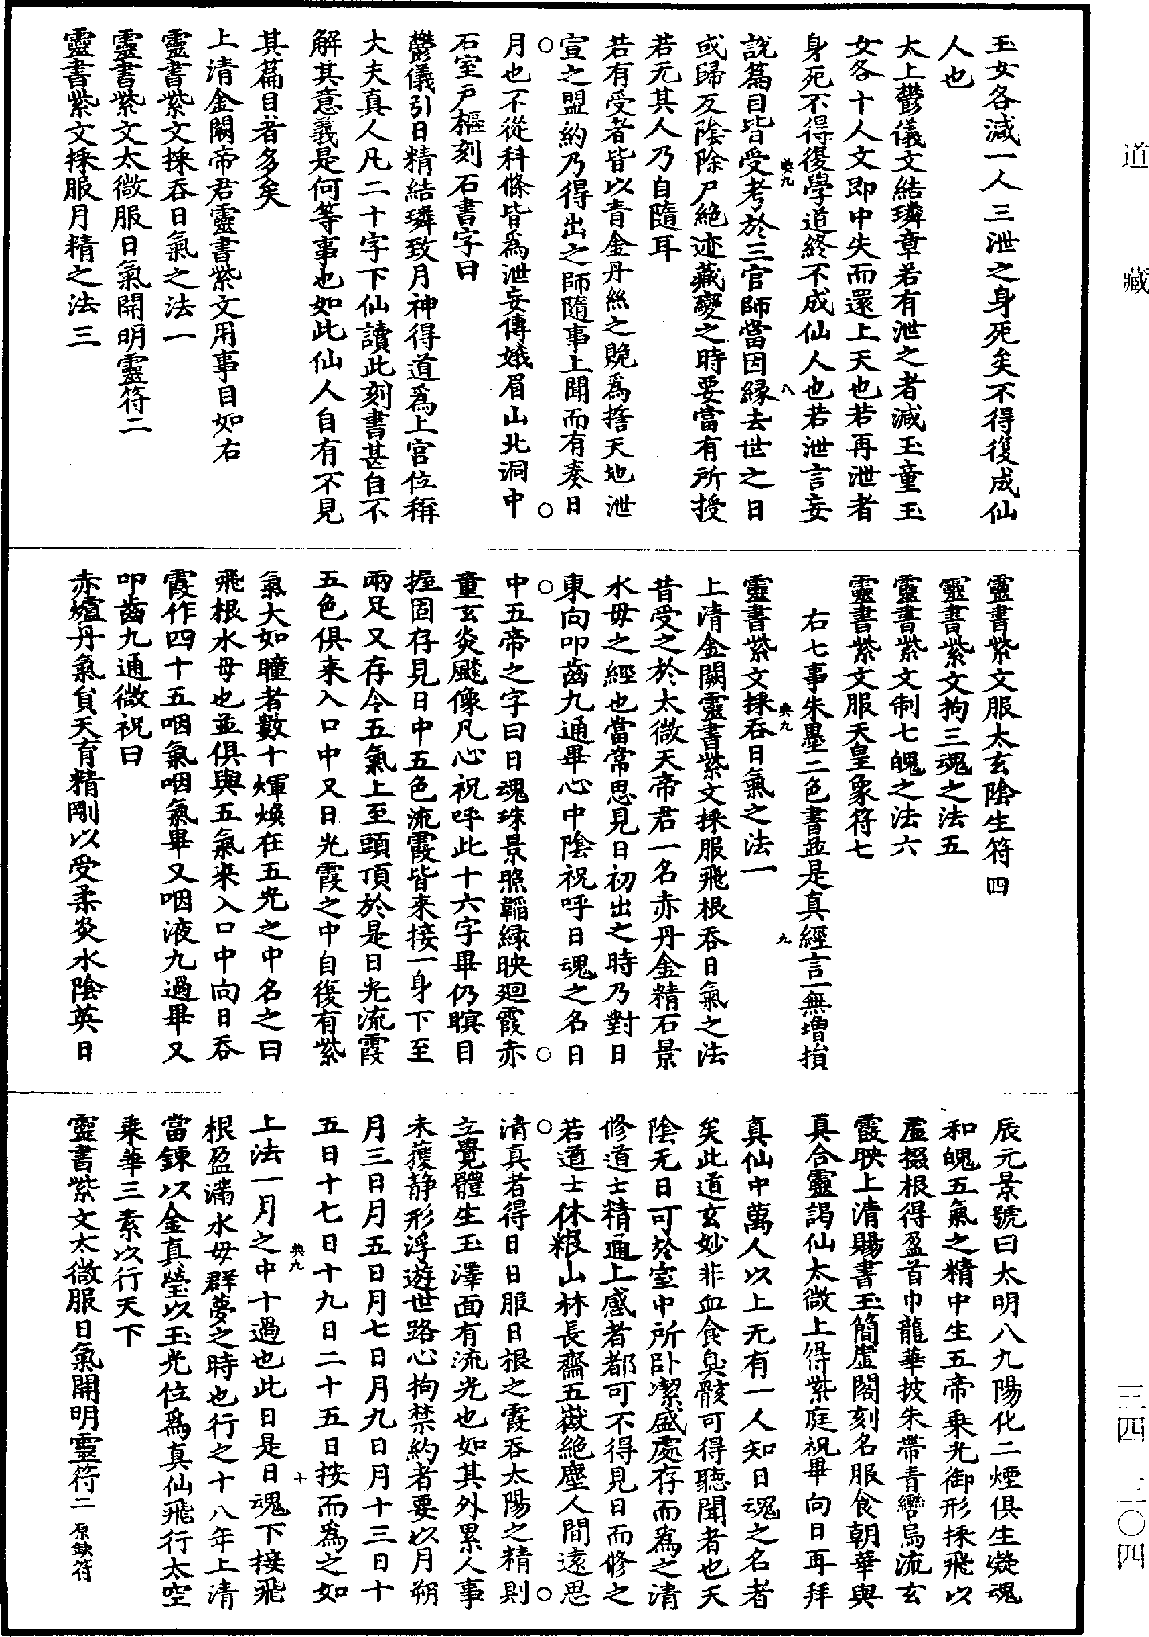 道藏
玉女各減一人三泄之身死矣不得復成仙
人也
太上鬱儀文結璘章若有泄之者減玉童玉
女各十人文即中失而還上天也若再泄者
身死不得復學道終不成仙人也若泄言妄
典九 八
說篇目皆受考於三官師當因緣去世之日
或歸反陰除尸絕迹藏變之時要當有所授
若无其人乃自隨耳
若有受者皆以青金丹絲之贶爲誓天地泄
宣之盟約乃得出之師隨事上聞而有奏日
月也不從科條皆爲泄妄傳娥眉山北洞中
石室戶樞刻石書字曰
鬱儀引日精結璘致月神得道爲上宮位稱
大夫真人凡二十字下仙讀此刻書甚自不
解其意義是何等事也如此仙人自有不見
其篇目者多矣
上清金闕帝君靈書紫文用事目如右
靈書紫文採吞日氣之法一
靈書紫文太微服日氣開明靈符二
靈書紫文採服月精之法三
靈書紫文服太玄陰生符四
靈書紫文拘三魂之法五
靈書紫文制七魄之法六
靈書紫文服天皇象符七
右七事朱墨二色書並是真經言無增損
典九 九
靈書紫文採吞日氣之法一
上清金闕靈書紫文採服飛根吞日氣之法
昔受之於太微天帝君一名赤丹金精石景
水母之經也當常思見日初出之時乃對日
東向叩齒九通畢心中陰祝呼日魂之名日
中五帝之字曰日魂珠景照韜綠映廻霞赤
童玄炎飈像凡心祝呼此十六字畢仍瞑目
握固存見日中五色流霞皆來接一身下至
兩足又存令五氣上至頭頂於是日光流霞
五色俱來入口中又日光霞之中自復有紫
氣大如瞳者數十煇煥在五光之中名之曰
飛根水母也並俱與五氣來入口中向日吞
霞作四十五咽氣咽氣畢又咽液九過畢又
叩齒九通微祝曰
赤爐丹氣貟天育精剛以受柔炎水陰英日
辰元景號曰太明八九陽化二煙俱生凝魂
和魄五氣之精中生五帝乘光御形採飛以
虛掇根得盈首巾龍華披朱帶青轡烏流玄
霞映上清賜書玉簡虛閣刻名服食朝華與
真合靈謁仙太微上得紫庭祝畢向日再拜
真仙中萬人以上无有一人知日魂之名者
矣此道玄妙非血食臭骸可得聽聞者也天
陰无日可於室中所卧潔盛處存而爲之清
修道士精通上感者都可不得見日而修之
若道士休粮山林長齋五嶽絕塵人間遠思
清真者得日日服日根之霞吞太陽之精則
立覺體生玉澤面有流光也如其外累人事
未獲静形浮遊世路心拘禁約者要以月朔
月三日月五日月七日月九日月十三日十
五日十七日十九日二十五日按而爲之如
典九 十
上法一月之中十過也此日是日魂下接飛
根盈滿水母群夢之時也行之十八年上清
當鍊以金真瑩以玉光位爲真仙飛行太空
乘華三素以行天下
靈書紫文太微服日氣開明靈符二 原缺符
三四 三〇四